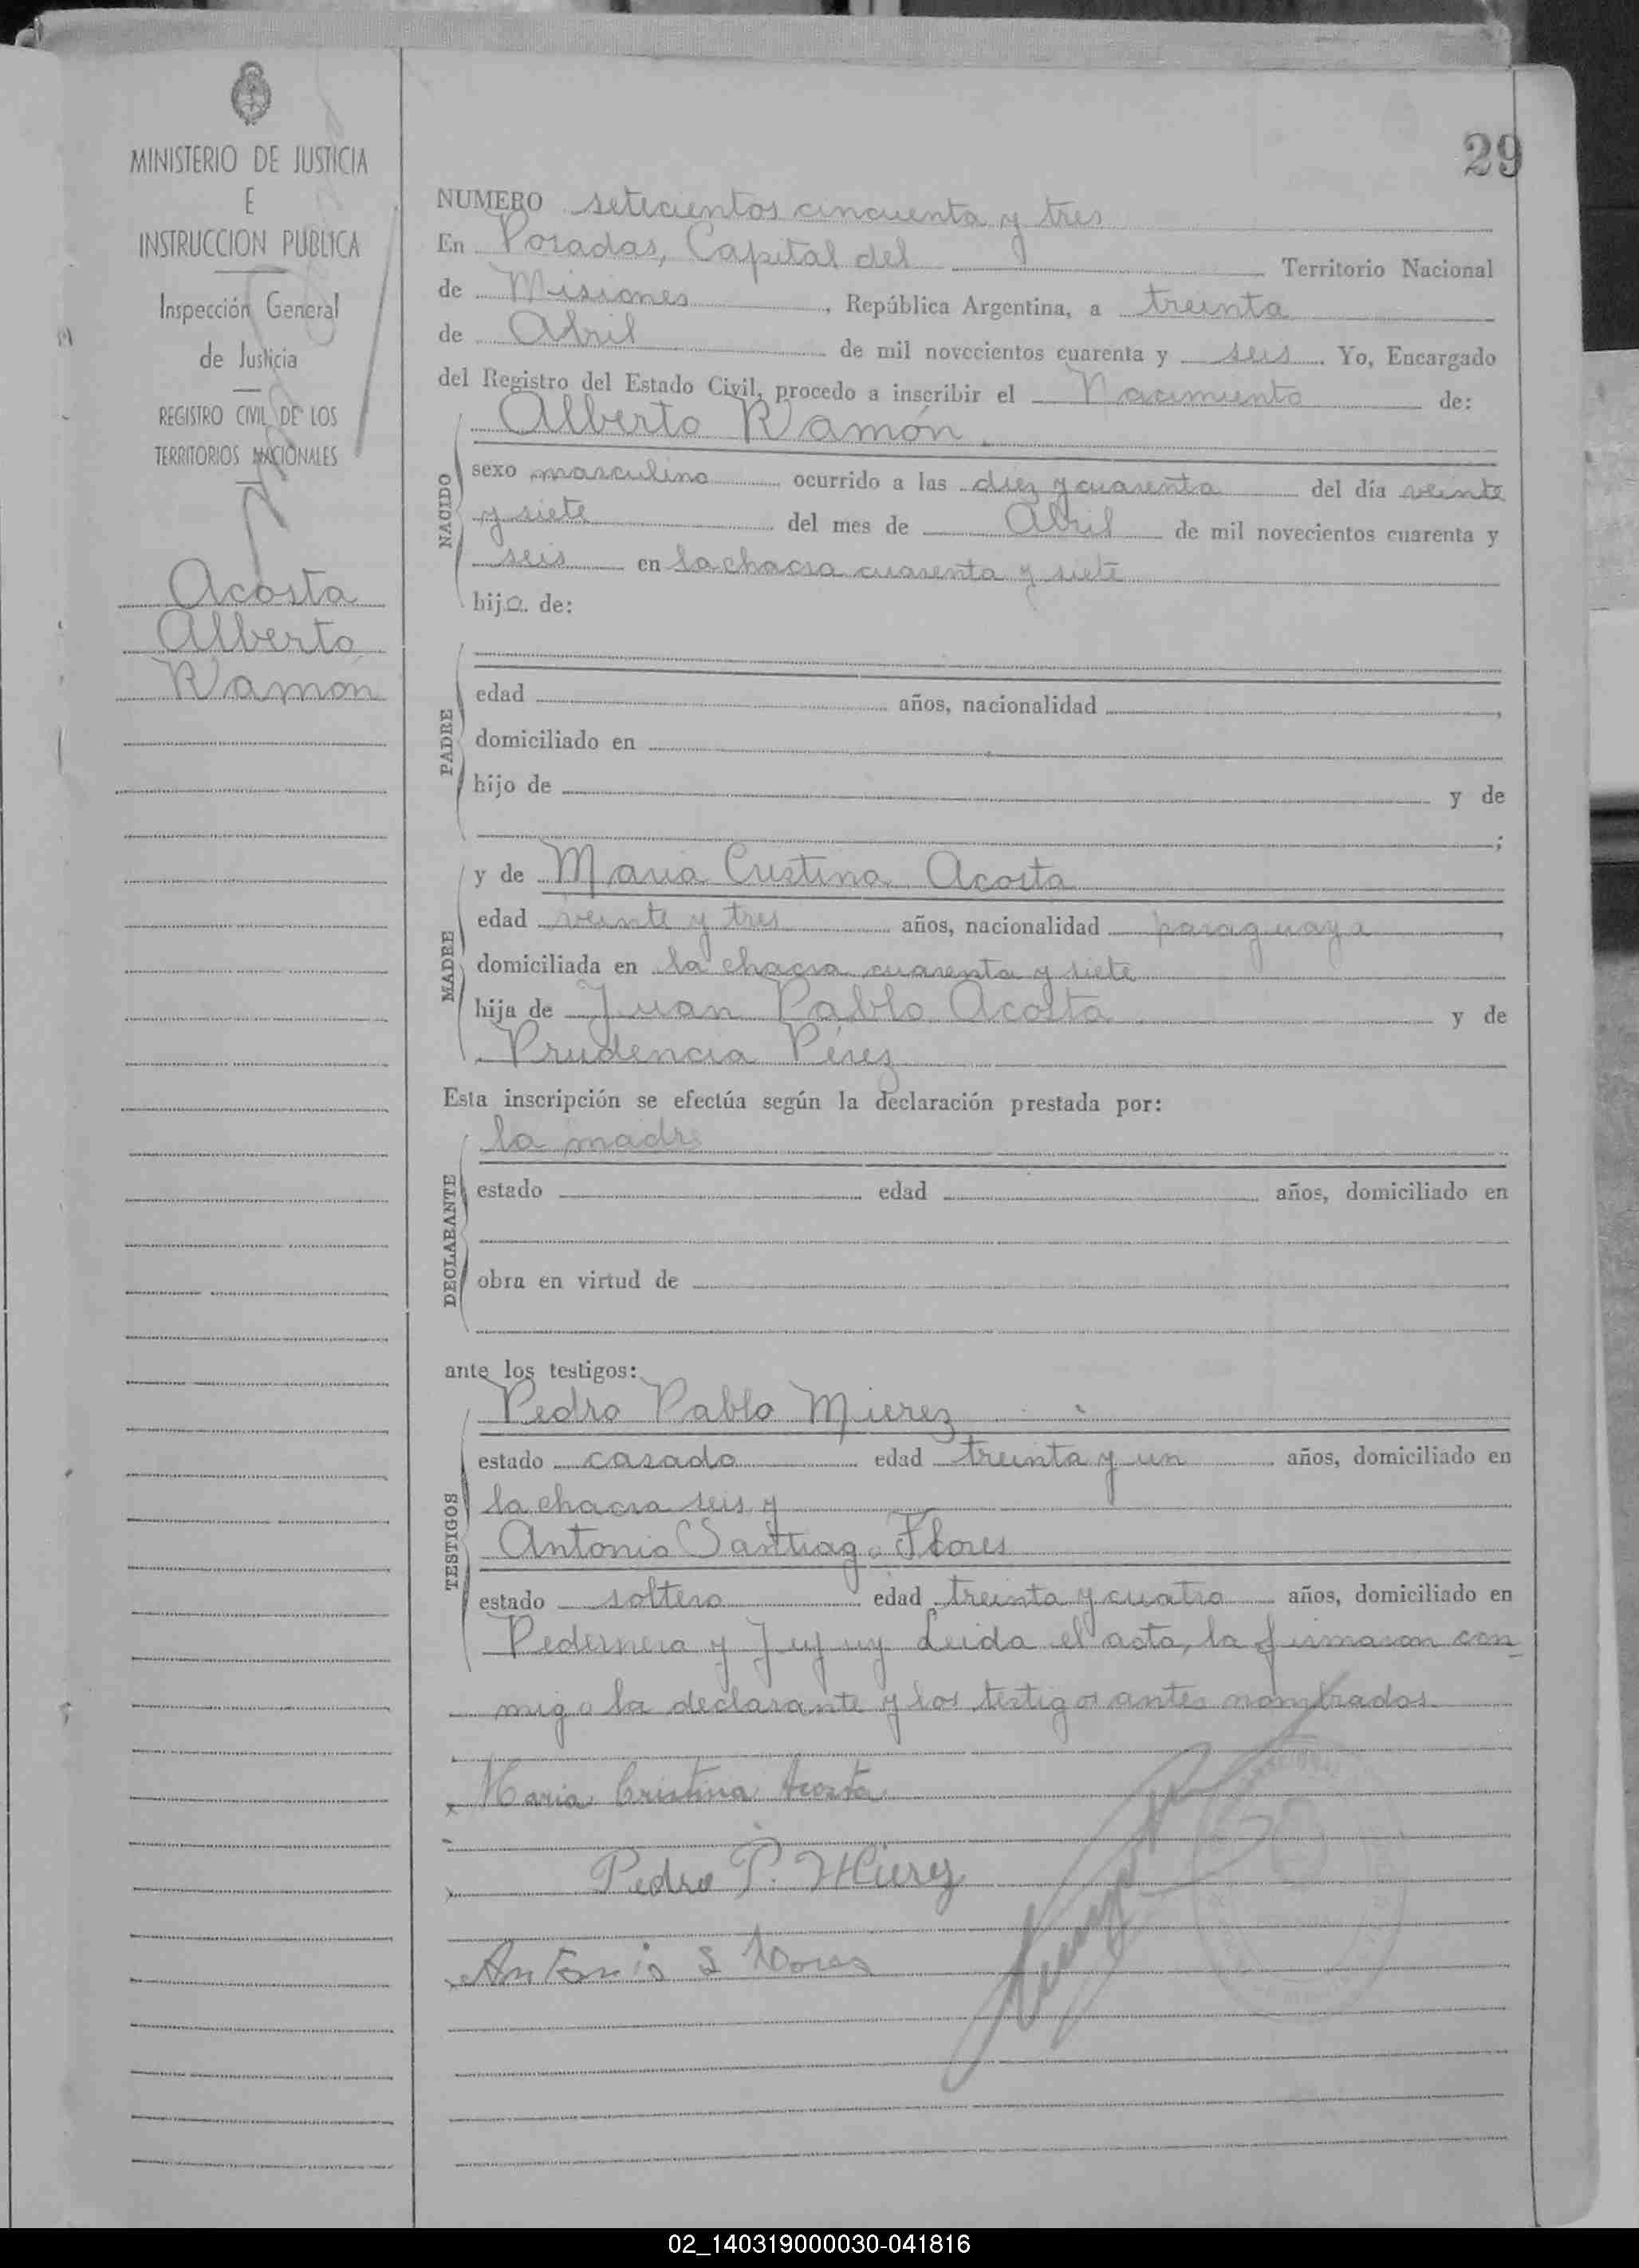 MINISTERIO DE JUSTICIA
E
INSTRUCCION PUBLICA
Inspección General
de Justicia
REGISTRO CIVIL DE LOS
TERRITORIOS NACIONALES
Acosta
Alberto
Ramón
29
NUMERO setecientos cincuenta y tres
En Posadas, Capital del Territorio Nacional
de Misiones, República Argentina, a treinta
de Abril de mil novecientos cuarenta y seis. Yo, Encargado
del Registro del Estado Civil, procedo a inscribir el Nacimiento de:
NACIDO
Alberto Ramón.
sexo masculino ocurrido a las diez y cuarenta del día veinte
y siete del mes de Abril de mil novecientos cuarenta y
seis en la chacra cuarenta y siete
hijo de:
PADRE
edad años, nacionalidad ,
domiciliado en
hijo de y de
;
MADRE
y de Maria Cristina Acosta
edad veinte y tres años, nacionalidad paraguaya,
domiciliada en la chacra cuarenta y siete
hija de Juan Pablo Acosta y de
Prudencia Pérez
Esta inscripción se efectúa según la declaración prestada por:
DECLARANTE
la madre
estado edad años, domiciliado en
obra en virtud de
ante los testigos:
TESTIGOS
Pedro Pablo Mierez
estado casado edad treinta y un años, domiciliado en
la chacra seis y
Antonio Santiago Flores
estado soltero edad treinta y cuatro años, domiciliado en
Pedernera y Jujuy Leida el acta, la firmaron con-
migo la declarante y los testigos antes nombrados.
Maria Cristina Acosta
Pedro P. Mierez
Antonio S Flores
02_140319000030-041816